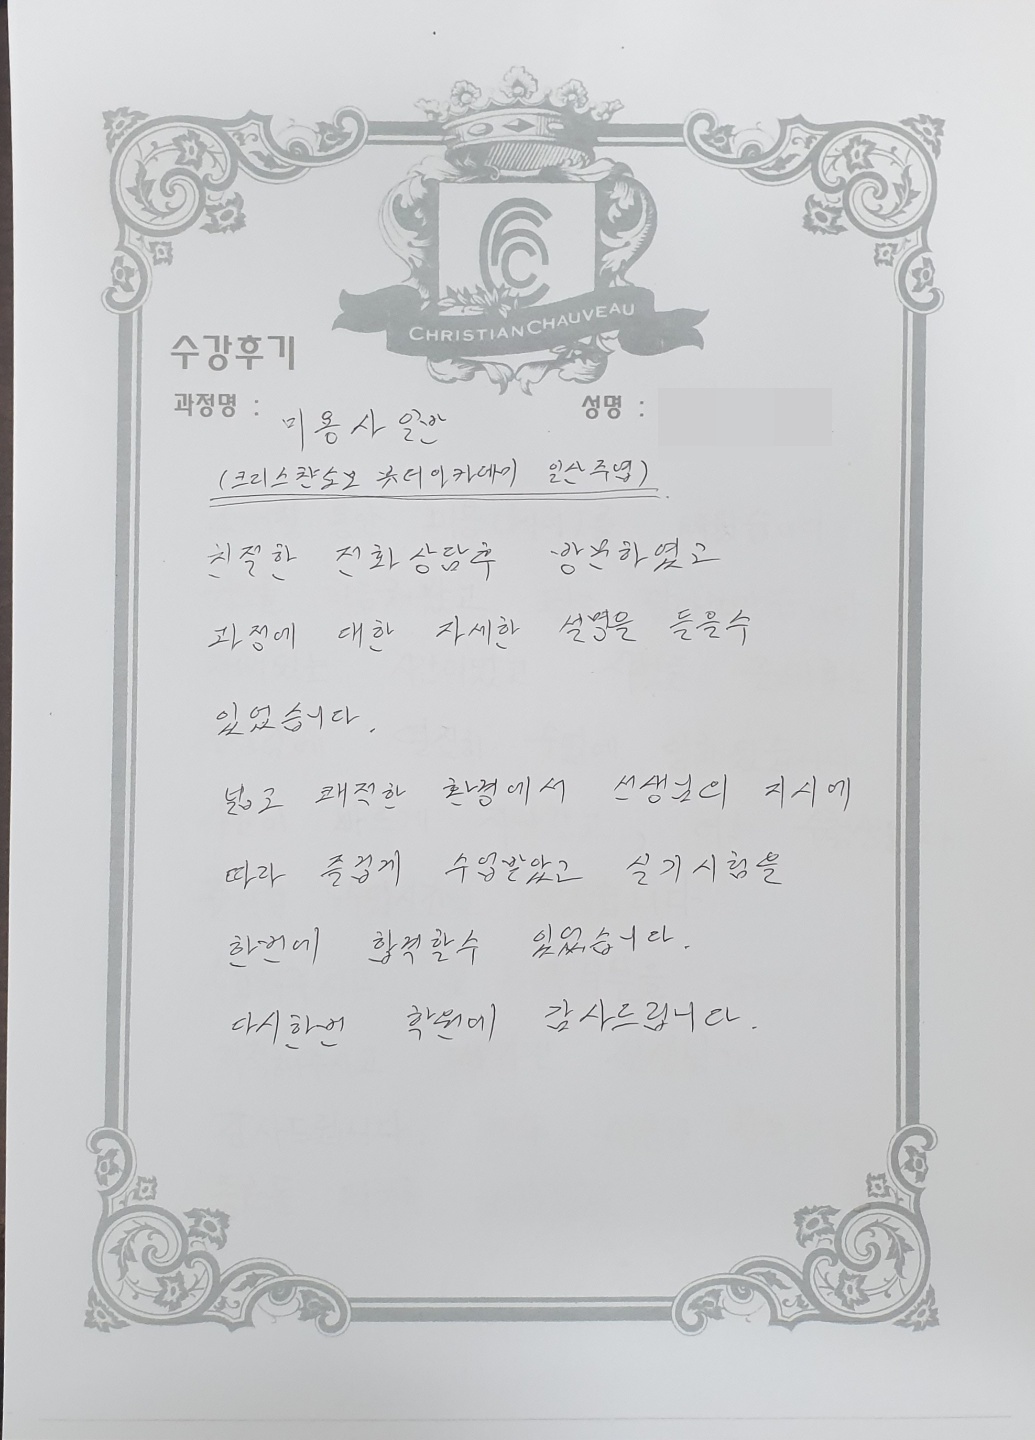 CHRISTIAN CHAUVEAU
수강후기
과정명 : 미용사 일반 성명 :
(크리스챤쇼보 뷰티아카데미 일산주엽)
친절한 전화상담후 방문하였고
과정에 대한 자세한 설명을 들을수
있었습니다.
넓고 쾌적한 환경에서 선생님의 지시에
따라 즐겁게 수업받았고 실기시험을
한번에 합격할수 있었습니다.
다시한번 학원에 감사드립니다.